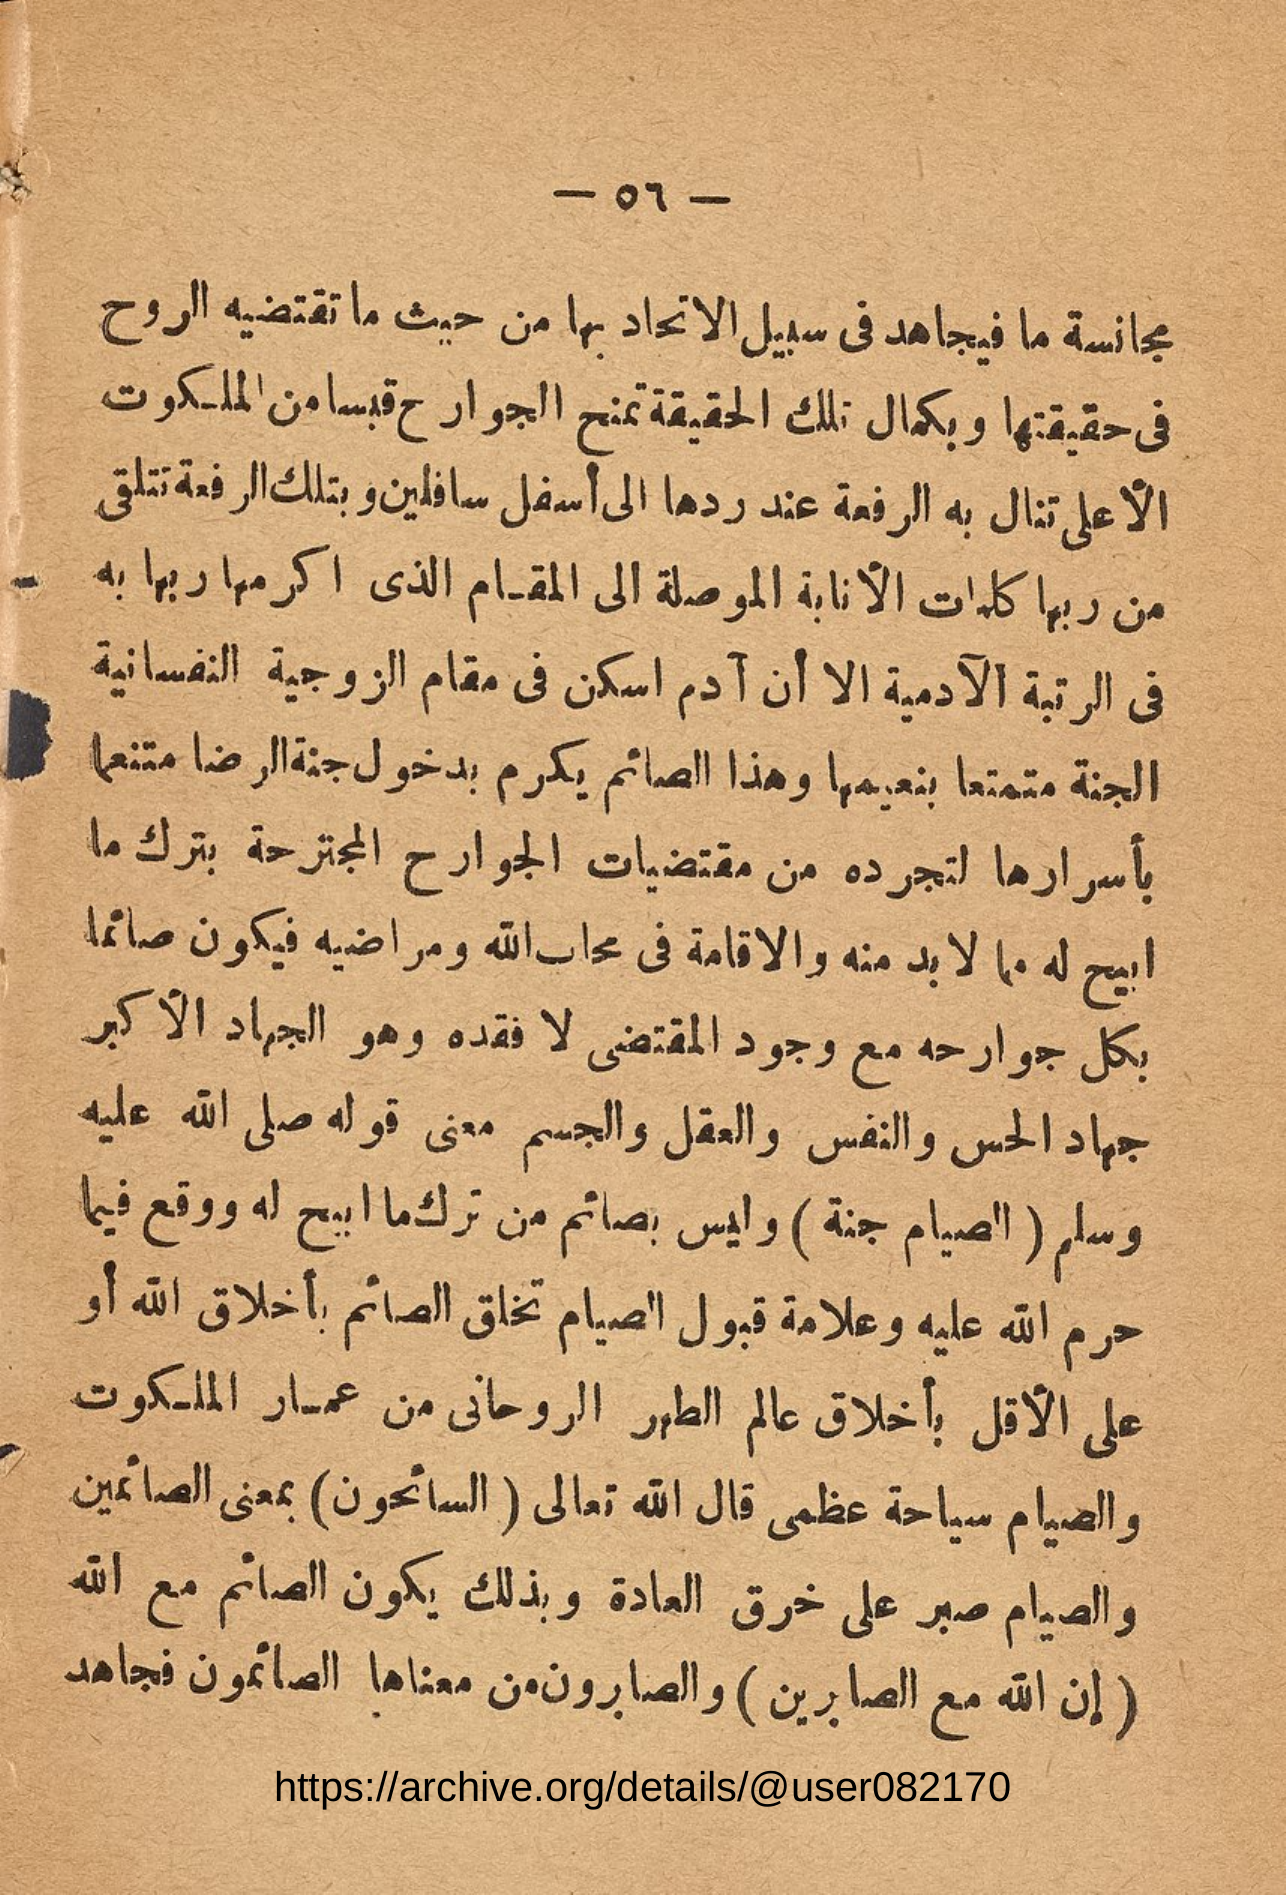 — ٥٦ —
مجانسة ما فيجاهد فى سبيل الاتحاد بها من حيث ما تقتضيه الروح
فى حقيقتها وبكمال تلك الحقيقة تمنح الجوارح قبسا من الملكوت
الأعلى تنال به الرفعة عند ردها الى أسفل سافلين وبتلك الرفعة تتلقى
من ربها كلمات الأنابة الموصلة الى المقام الذى اكرمها ربها به
فى الرتبة الآدمية الا أن آدم اسكن فى مقام الزوجية النفسانية
الجنة متمتعا بنعيمها وهذا الصائم يكرم بدخول جنة الرضا متنعما
بأسرارها لتجرده من مقتضيات الجوارح المجترحة بترك ما
ابيح له مما لا بد منه والاقامة فى محاب الله ومراضيه فيكون صائما
بكل جوارحه مع وجود المقتضى لا فقده وهو الجهاد الأكبر
جهاد الحس والنفس والعقل والجسم معنى قوله صلى الله عليه
وسلم ( الصيام جنة ) وليس بصائم من ترك ما ابيح له ووقع فيما
حرم الله عليه وعلامة قبول الصيام تخلق الصائم بأخلاق الله أو
على الأقل بأخلاق عالم الطهر الروحانى من عمار الملكوت
والصيام سياحة عظمى قال الله تعالى ( السائحون ) بمعنى الصائمين
والصيام صبر على خرق العادة وبذلك يكون الصائم مع الله
( إن الله مع الصابرين ) والصابرون من معناها الصائمون فجاهد
https://archive.org/details/@user082170